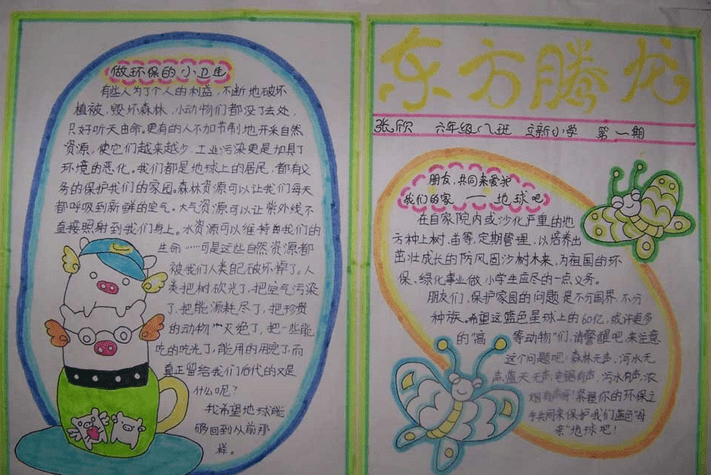 做环保的小卫生
有些人为了个人的利益，不断地破坏
植被，毁坏森林，小动物们都没了去处，
只好听天由命。更有的人不加节制地开采自然
资源，使它们越来越少，工业污染更是加具了
环境的恶化。我们都是地球上的居民，都有义
务的保护我们的家园。森林资源可以让我们每天
都呼吸到新鲜的空气。大气资源可以让紫外线不
直接照射到我们身上。水资源可以维持着我们的
生命……可是这些自然资源都
被我们人类自己破坏掉了。人
类把树砍光了，把空气污染
了，把能源耗尽了，把珍贵
的动物灭绝了，把一些能
吃的吃光了，能用的用完了，而
真正留给我们后代的又是
什么呢？
我希望地球能
够回到从前那
样。
东方腾龙
张欣 六年级八班 立新小学 第一期
朋友，共同来爱我
我们的家——地球吧
在自家院内或沙化严重的地
方种上树、苗等，定期管理，以培养出
茁壮成长的防风固沙树木来，为祖国的环
保、绿化事业做小学生应尽的一点义务。
朋友们，保护家园的问题是不分国界，不分
种族。希望这蓝色星球上的60亿，或许更多
的“高等动物”们，请警醒吧，来注意
这个问题吧：森林无声，河水无
声，蓝天无声，电锯有声，污水有声，浓
烟有声啊！紧握你的环保之
手共同来保护我们蓝色“母
亲”地球吧！